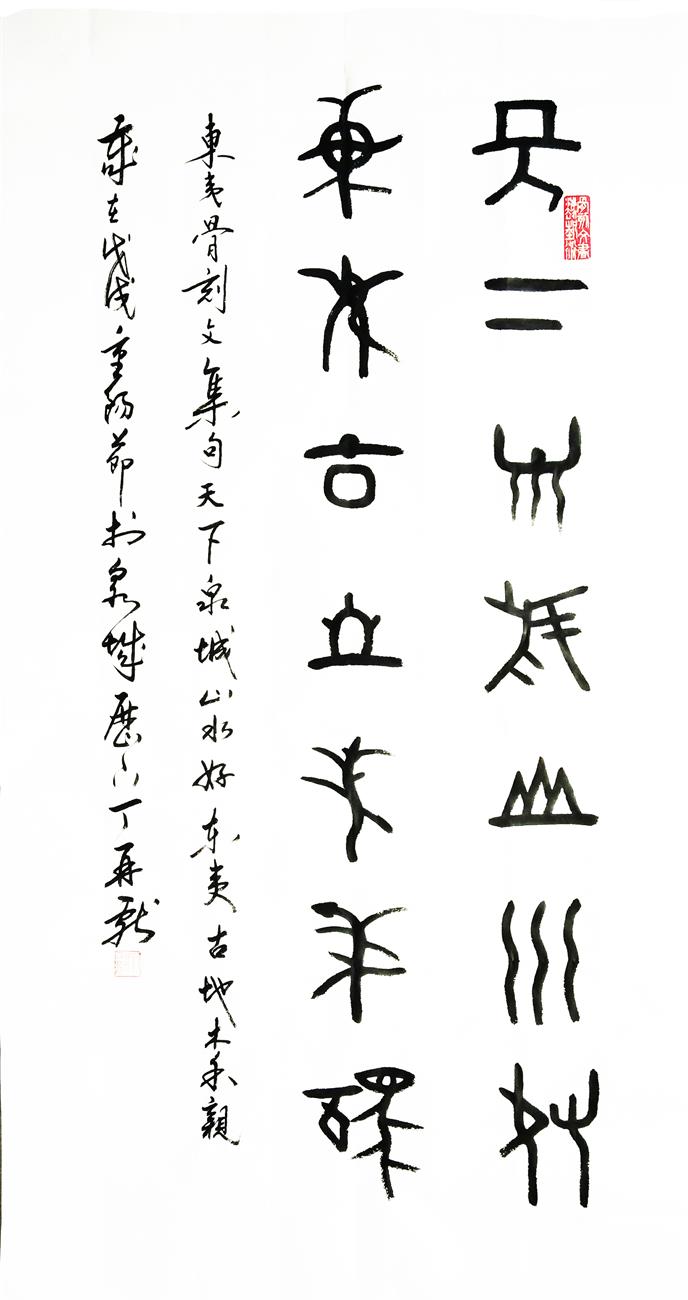 天下泉城山水好
東夷古地木禾親
東夷骨刻文集句天下泉城山水好东夷古地木禾親
歲在戊戌重陽節於泉城歷下丁再献